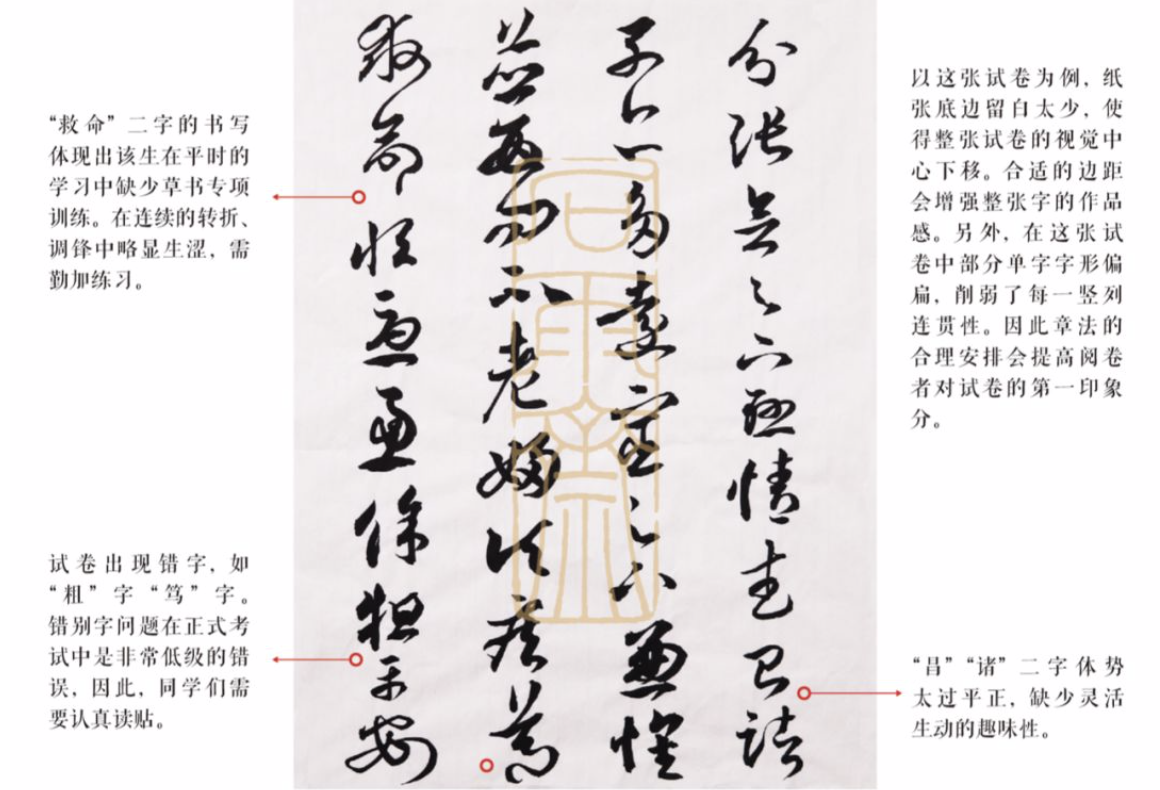 “救命”二字的书写
体现出该生在平时的
学习中缺少草书专项
训练。在连续的转折、
调锋中略显生涩，需
勤加练习。
试卷出现错字，如
“粗”字“笃”字。
错别字问题在正式考
试中是非常低级的错
误，因此，同学们需
要认真读贴。
分張情昌諸
子多
老婦疾篤
救命恒憂慮餘粗平安
以这张试卷为例，纸
张底边留白太少，使
得整张试卷的视觉中
心下移。合适的边距
会增强整张字的作品
感。另外，在这张试
卷中部分单字字形偏
扁，削弱了每一竖列
连贯性。因此章法的
合理安排会提高阅卷
者对试卷的第一印象
分。
“昌”“诸”二字体势
太过平正，缺少灵活
生动的趣味性。